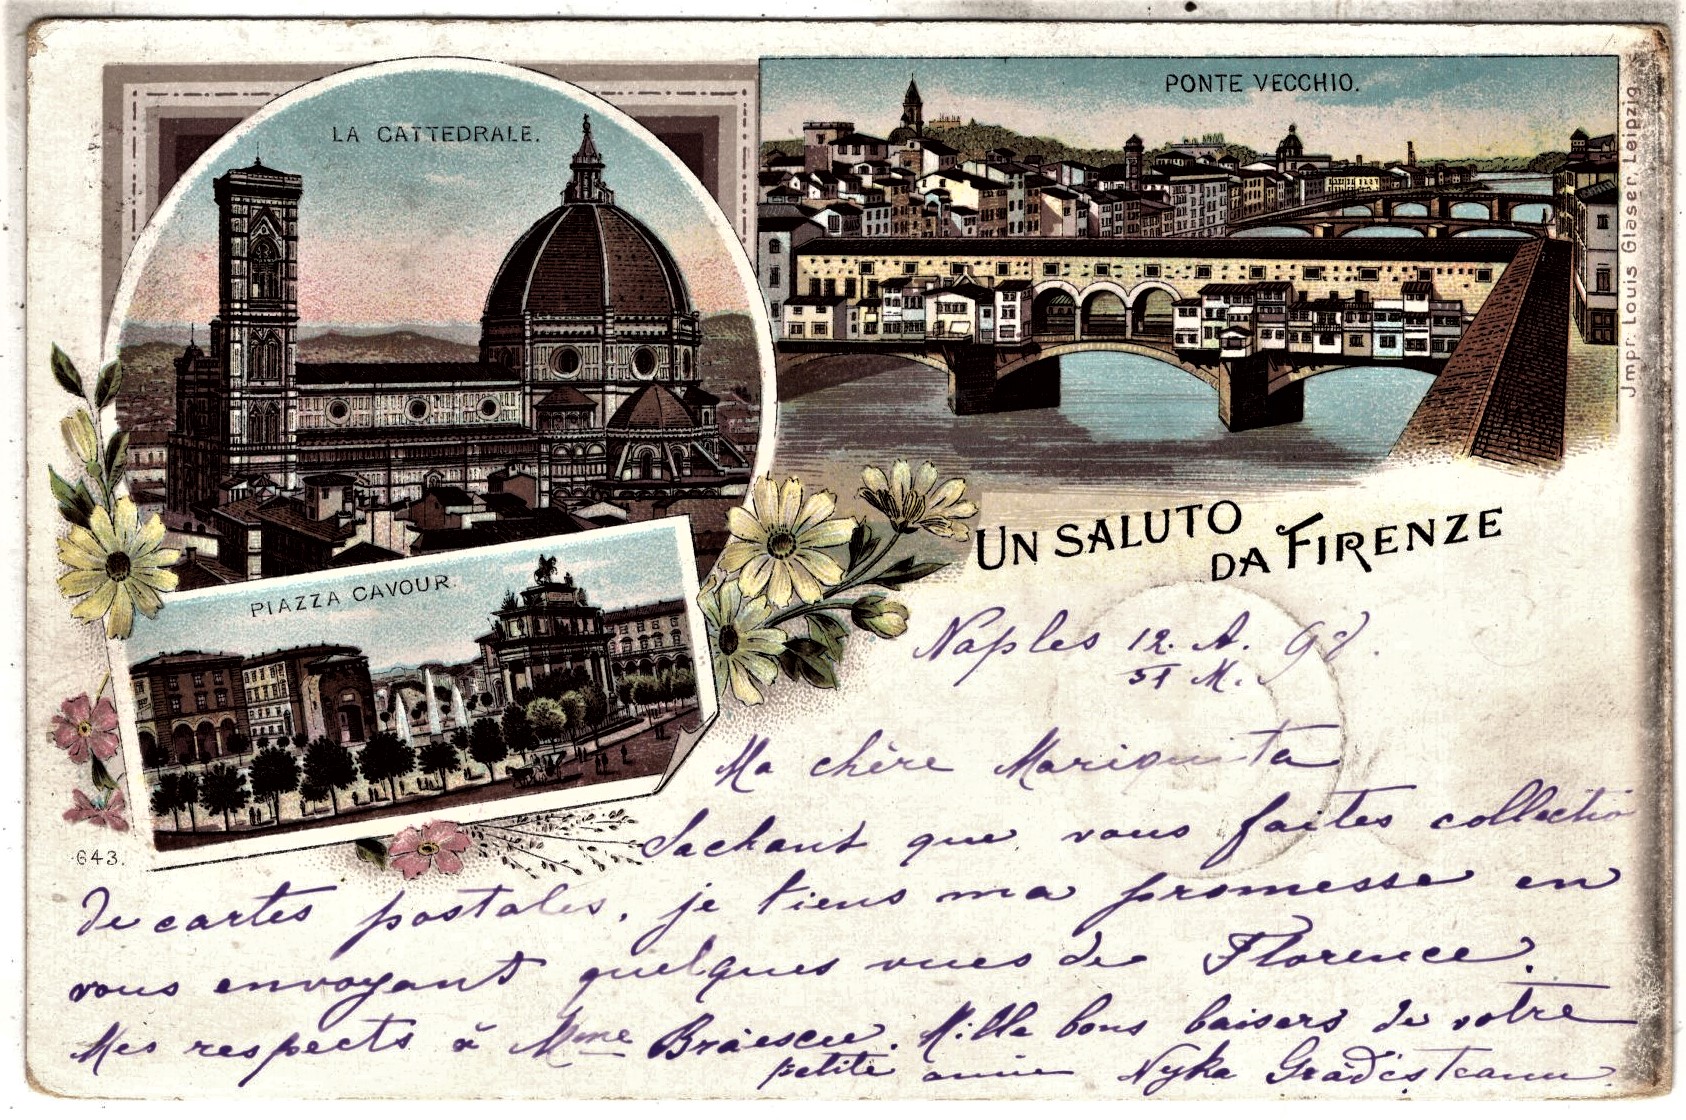 LA CATTEDRALE.
PONTE VECCHIO.
Jmpr. Louis Glaser, Leipzig.
PIAZZA CAVOUR.
UN SALUTO
DA FIRENZE
643.
Naples 12. A. 98.
31 M.
Ma chère Mariquita
Sachant que vous faites collectio
de cartes postales, je tiens ma promesse en
vous envoyant quelques vues de Florence.
Mes respects à Mme Brăescu. Mille bons baisers de votre
petite amie Nyka Grădisteanu.